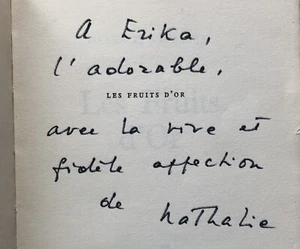 A Erika,
l'adorable,
LES FRUITS D'OR
avec la vive et
fidèle affection
de Nathalie